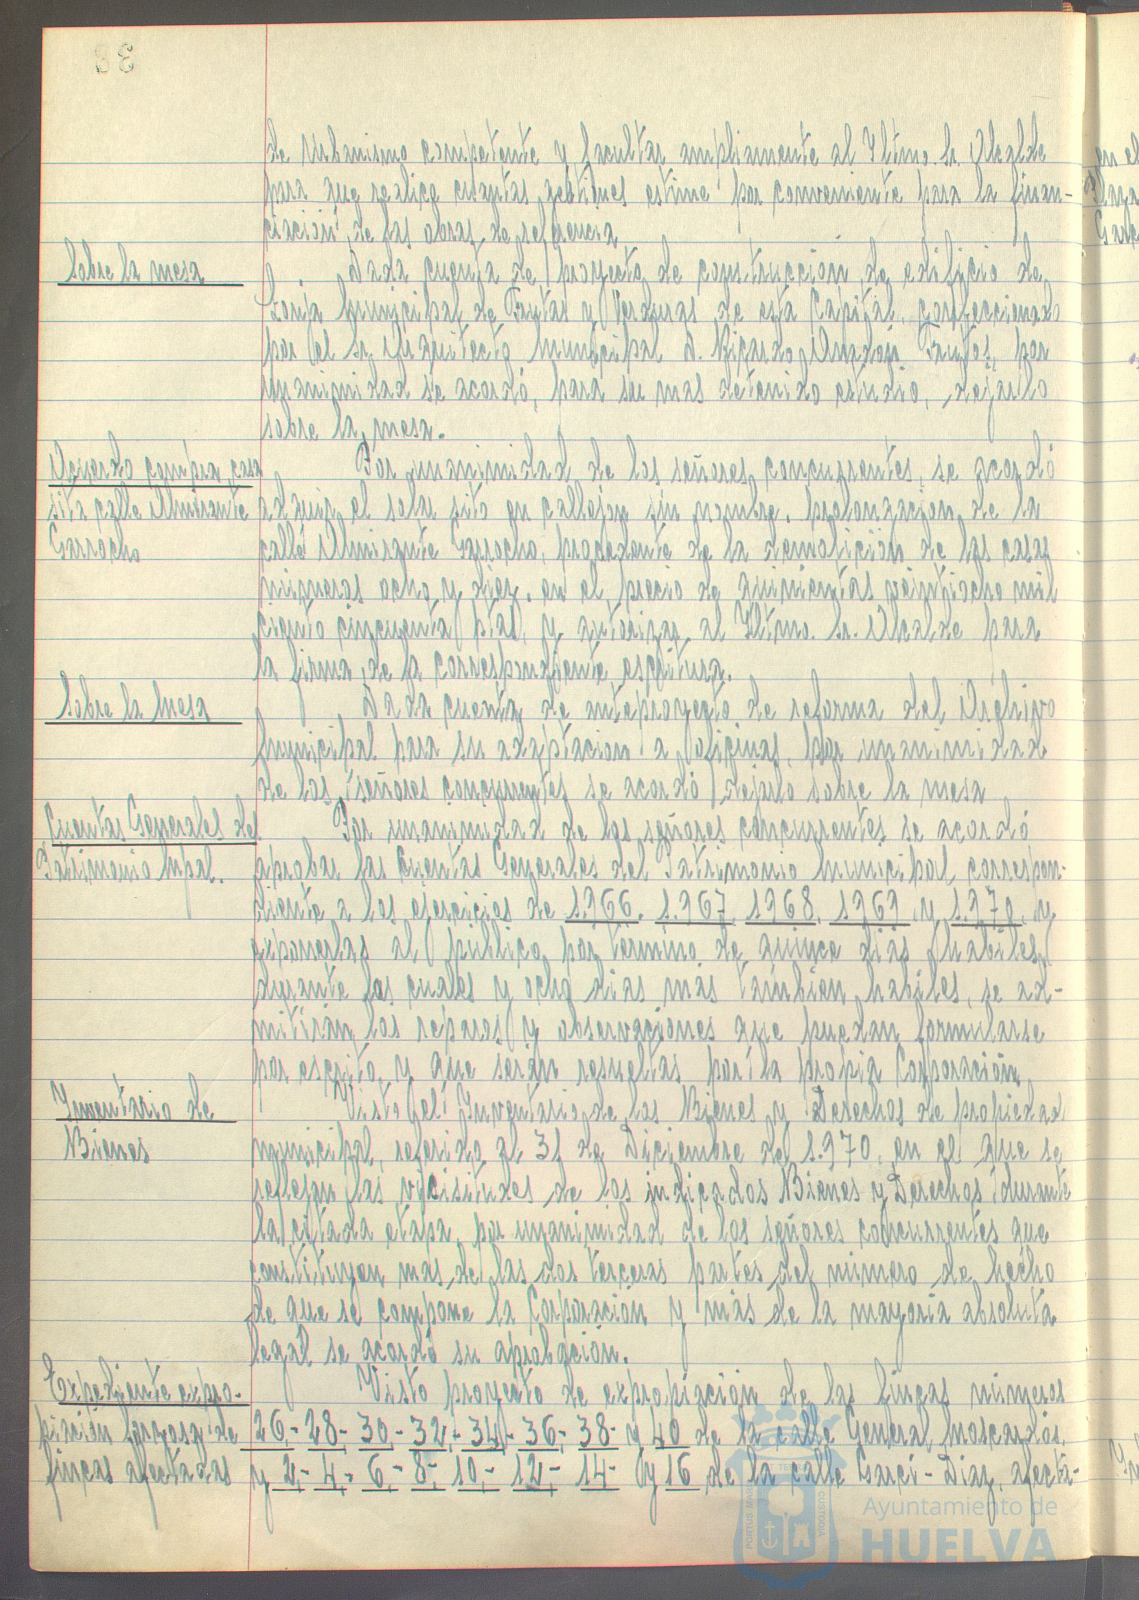 de Urbanismo competente y facultar ampliamente al Iltmo. Sr. Alcalde
para que realice cuantas gestiones estime por conveniente para la finan-
ciación de las obras de referencia
Sobre la mesa
Dada cuenta de proyecto de construcción de edificio de
Lonja Municipal de Frutas y Verduras de esta Capital, confeccionado
por el Sr. Arquitecto Municipal D. Ricardo Anadón Frutos, por
unanimidad se acordó, para su mas detenido estudio, dejarlo
sobre la mesa.
Acuerdo compra casa
sita calle Almirante
Garrocho
Por unanimidad de los señores concurrentes, se acordó
adquirir el solar sito en callejon sin nombre, prolongación de la
calle Almirante Garrocho, procedente de la demolición de las casas
números ocho y diez, en el precio de quinientas veintiocho mil
ciento cincuenta ptas, y autorizar al Iltmo. Sr. Alcalde para
la firma de la correspondiente escritura.
Sobre la Mesa
Dada cuenta de anteproyecto de reforma del Archivo
Municipal para su adaptacion a oficinas, por unanimidad
de los señores concurrentes se acordó dejarlo sobre la mesa
Cuentas Generales del
Patrimonio Mpal.
Por unanimidad de los señores concurrentes se acordó
aprobar las Cuentas Generales del Patrimonio Municipal correspon-
diente a los ejercicios de 1.966, 1.967, 1968, 1969 y 1.970, y
exponerlas al público por termino de quince dias habiles,
durante los cuales y ocho dias más tambien habiles, se ad-
mitirán los reparos y observaciones que puedan formularse
por escrito y que serán resueltas por la propia Corporación
Inventario de
Bienes
Visto el Inventario de los Bienes y Derechos de propiedad
municipal, referido al 31 de Diciembre del 1.970, en el que se
reflejan las vicisitudes de los indicados Bienes y Derechos durante
la citada etapa, por unanimidad de los señores concurrentes que
constituyen mas de las dos terceras partes del número de hecho
de que se compone la Corporación y más de la mayoria absoluta
legal se acordó su aprobación.
Expediente expro-
piación forzosa de
fincas afectadas
Visto proyecto de expropiación de las fincas números
26,- 28,- 30,- 32,- 34,- 36,- 38- y 40 de la calle General Moscardó,
y 2,- 4,- 6,- 8,- 10,- 12,- 14- y 16 de la calle Garci-Diaz, afecta-
Ayuntamiento de
HUELVA